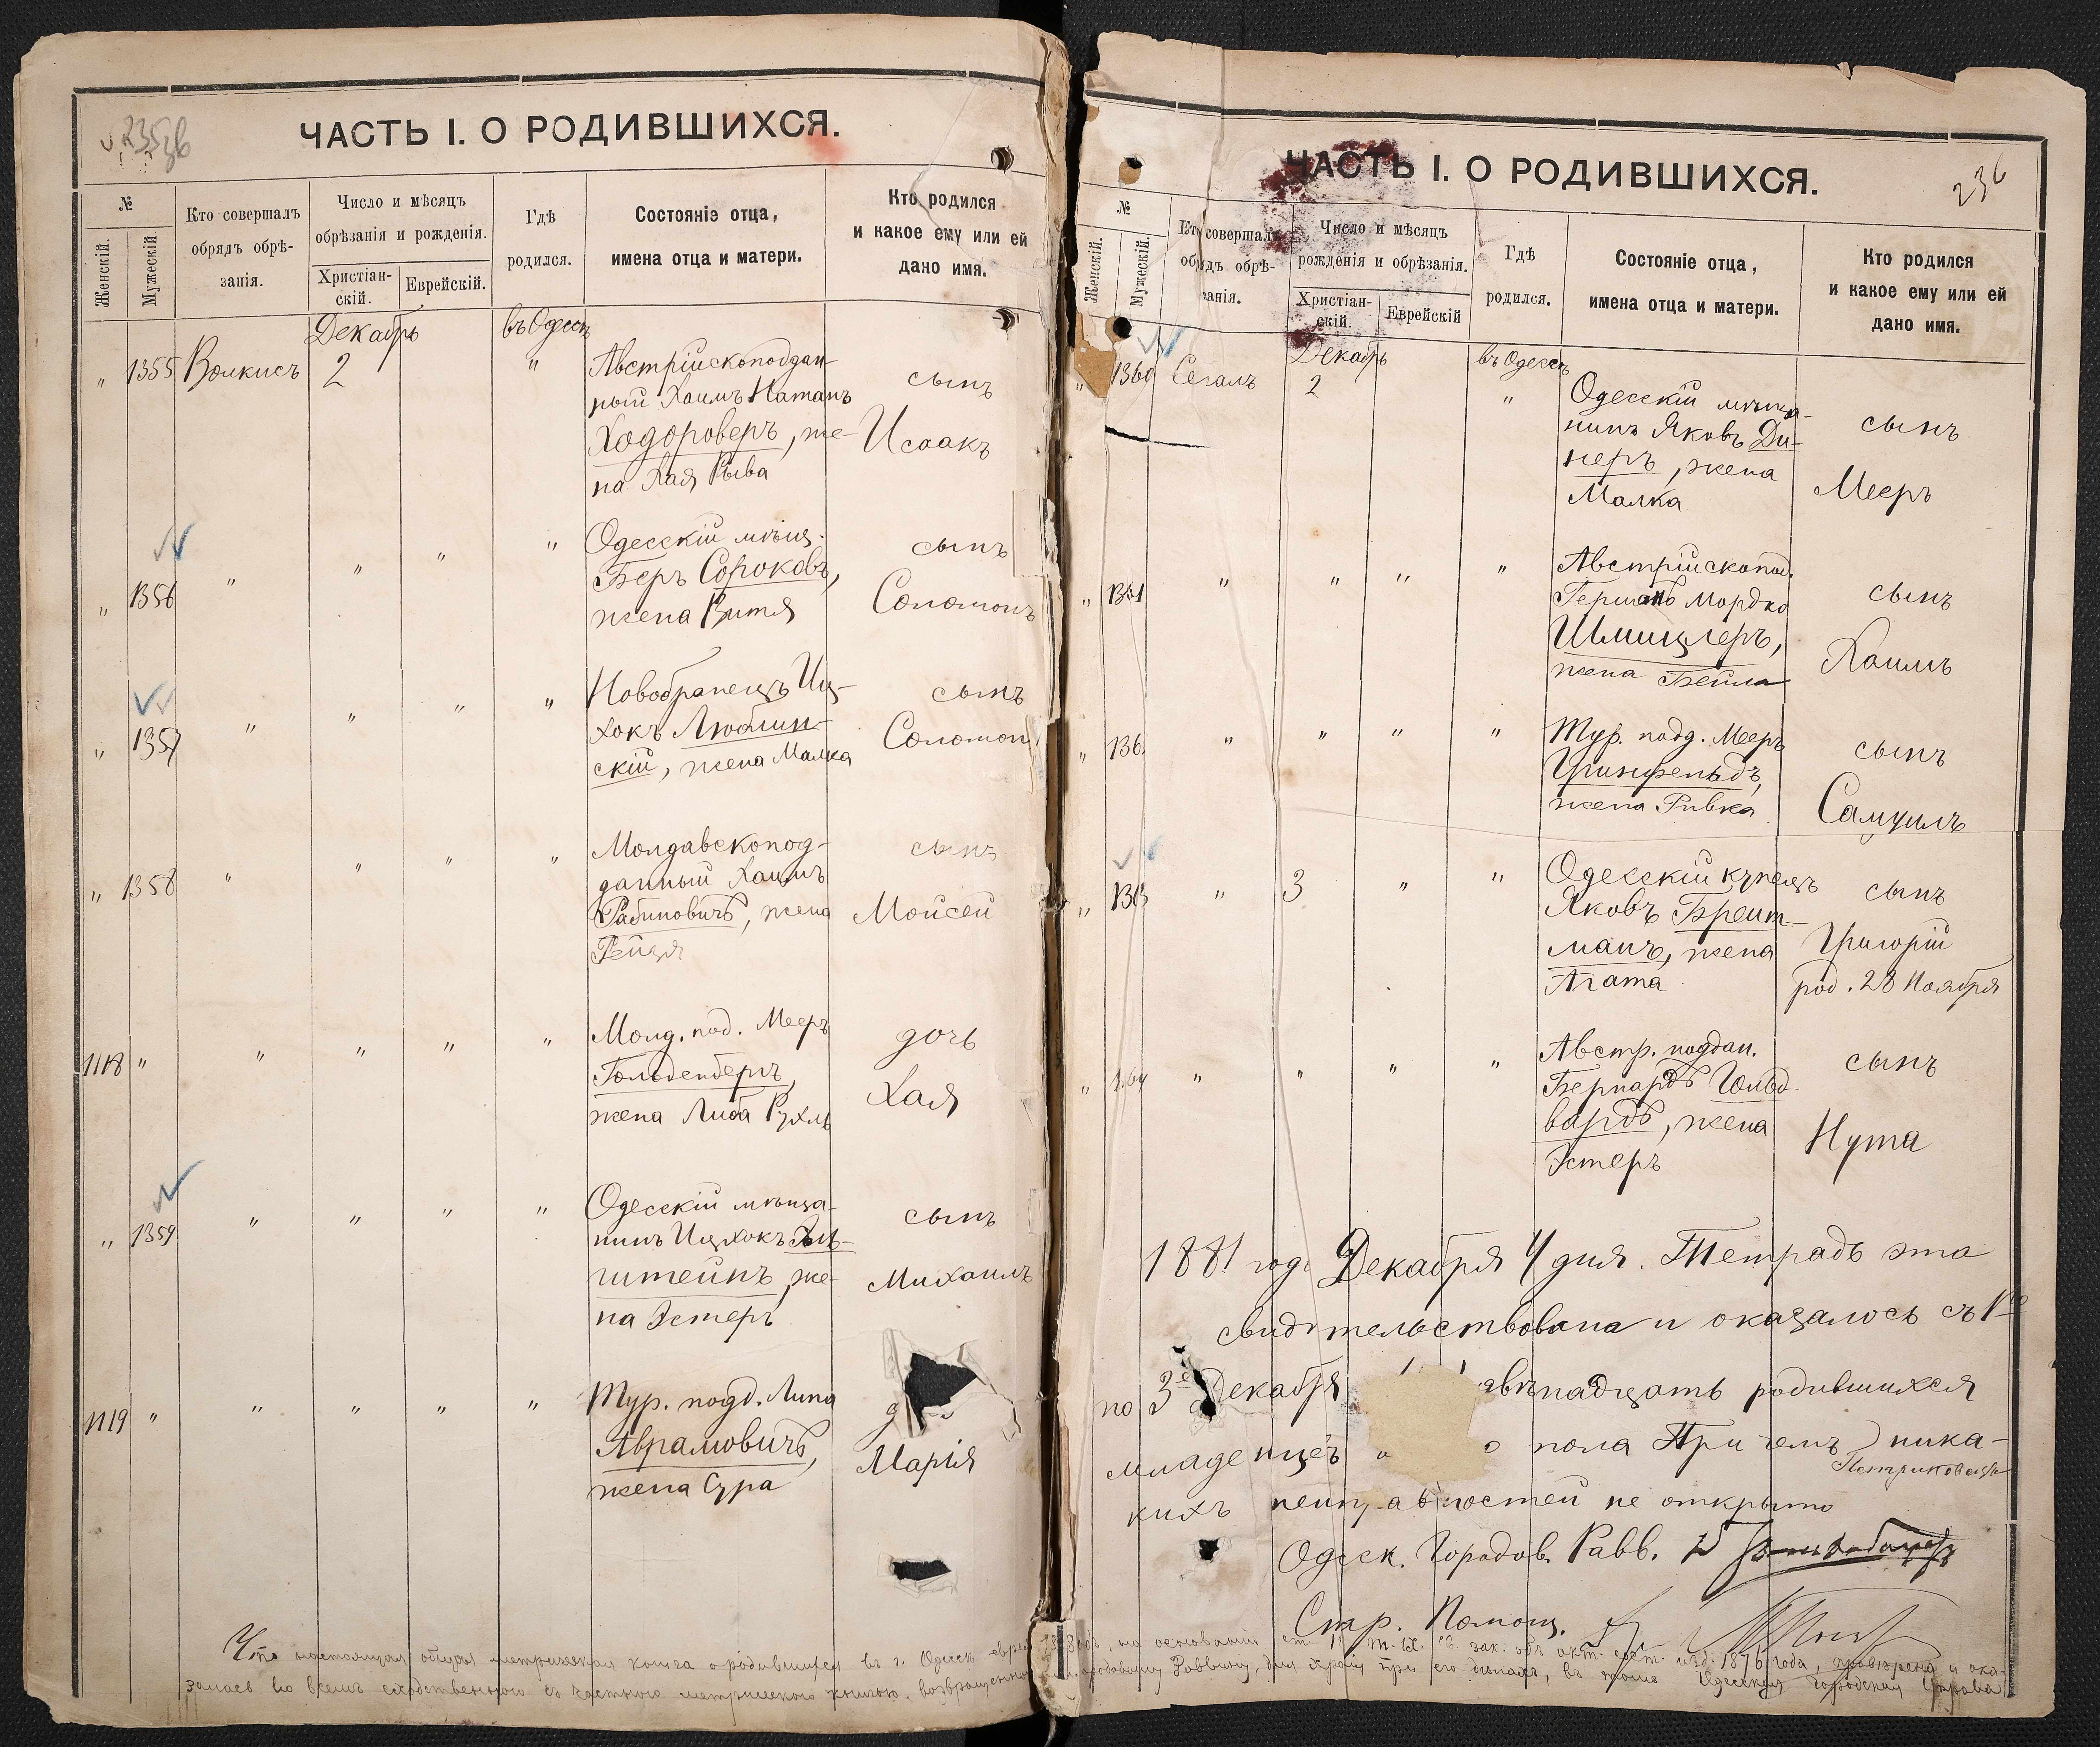 235 об
ЧАСТЬ I. О РОДИВШИХСЯ.
№
Женскій.
Мужескій
Кто совершалъ
обрядъ обрѣ-
занія.
Число и мѣсяцъ
обрѣзанія и рожденія.
Христіан-
скій.
Еврейскій.
Гдѣ
родился.
Состояніе отца,
имена отца и матери.
Кто родился
и какое ему или ей
дано имя.
Декабрь
въ Одессѣ
" 1355 Волкисъ 2 "
Австрійскоподдан-
ный Хаимъ Натанъ
Ходороверъ, же-
на Хая Рыва
сынъ
Исаакъ
" 1356 " " " "
Одесскій мѣщ.
Беръ Сороковъ,
жена Витя
сынъ
Соломонъ
" 1357 " " " "
Новобранецъ Иц-
хокъ Люблин-
скій, жена Малка
сынъ
Соломонъ
" 1358 " " " "
Молдавскопод-
данный Хаимъ
Рабиновичъ, жена
Рейзя
сынъ
Мойсей
1118 " " " " "
Молд. под. Мееръ
Гольденбергъ,
жена Либа Рухль
дочь
Хая
" 1359 " " " "
Одесскій мѣща-
нинъ Ицхокъ
штейнъ, же-
на Эстеръ
сынъ
Михаилъ
1119 " " " " "
Тур. подд. Липа
Аврамовичъ,
жена Сура
Марія
Что настоящая общая метрическая книга о родившихся въ г. Одессѣ
236
ЧАСТЬ I. О РОДИВШИХСЯ.
№
Женскій.
Мужескій.
Кто совершалъ
обрядъ обрѣ-
занія.
Число и мѣсяцъ
рожденія и обрѣзанія.
Христіан-
скій.
Еврейскій
Гдѣ
родился.
Состояніе отца,
имена отца и матери.
Кто родился
и какое ему или ей
дано имя.
Декабрь
въ Одессѣ
" 1360 Сегалъ 2 "
Одесскій мѣща-
нинъ Яковъ Ди-
неръ, жена
Малка
сынъ
Мееръ
" 1361 " " " "
Австрійскопод.
Гершко Мордко
Шмицлеръ,
жена Бейла
сынъ
Хаимъ
" 136 " " " "
Тур. подд. Мееръ
Гринфельдъ,
жена Ривка
сынъ
Самуилъ
" 1363 " 3 " "
Одесскій купецъ
Яковъ Бреит-
манъ, жена
Агата
сынъ
Григорій
род. 28 Ноября
" 1364 " " " "
Австр. поддан.
Бернардъ Гольд
вардъ, жена
Эстеръ
сынъ
Нута
1881 года Декабря 4 дня. Тетрадь эта
свидѣтельствована и оказалось съ 1го
по 3е Декабря надцать родившихся
младенцев пола При чемъ ника-
кихъ неисправностей не открыто
Одеск. Городов. Равв.
Стар. Помощ.
на основаніи ст. т. IX. св. зак. объ акт. сост. изд. 1876 года, провѣрена и ока-
Городскому Раввину, для храненія при его дѣлахъ, въ томъ Одесская Городская Управа